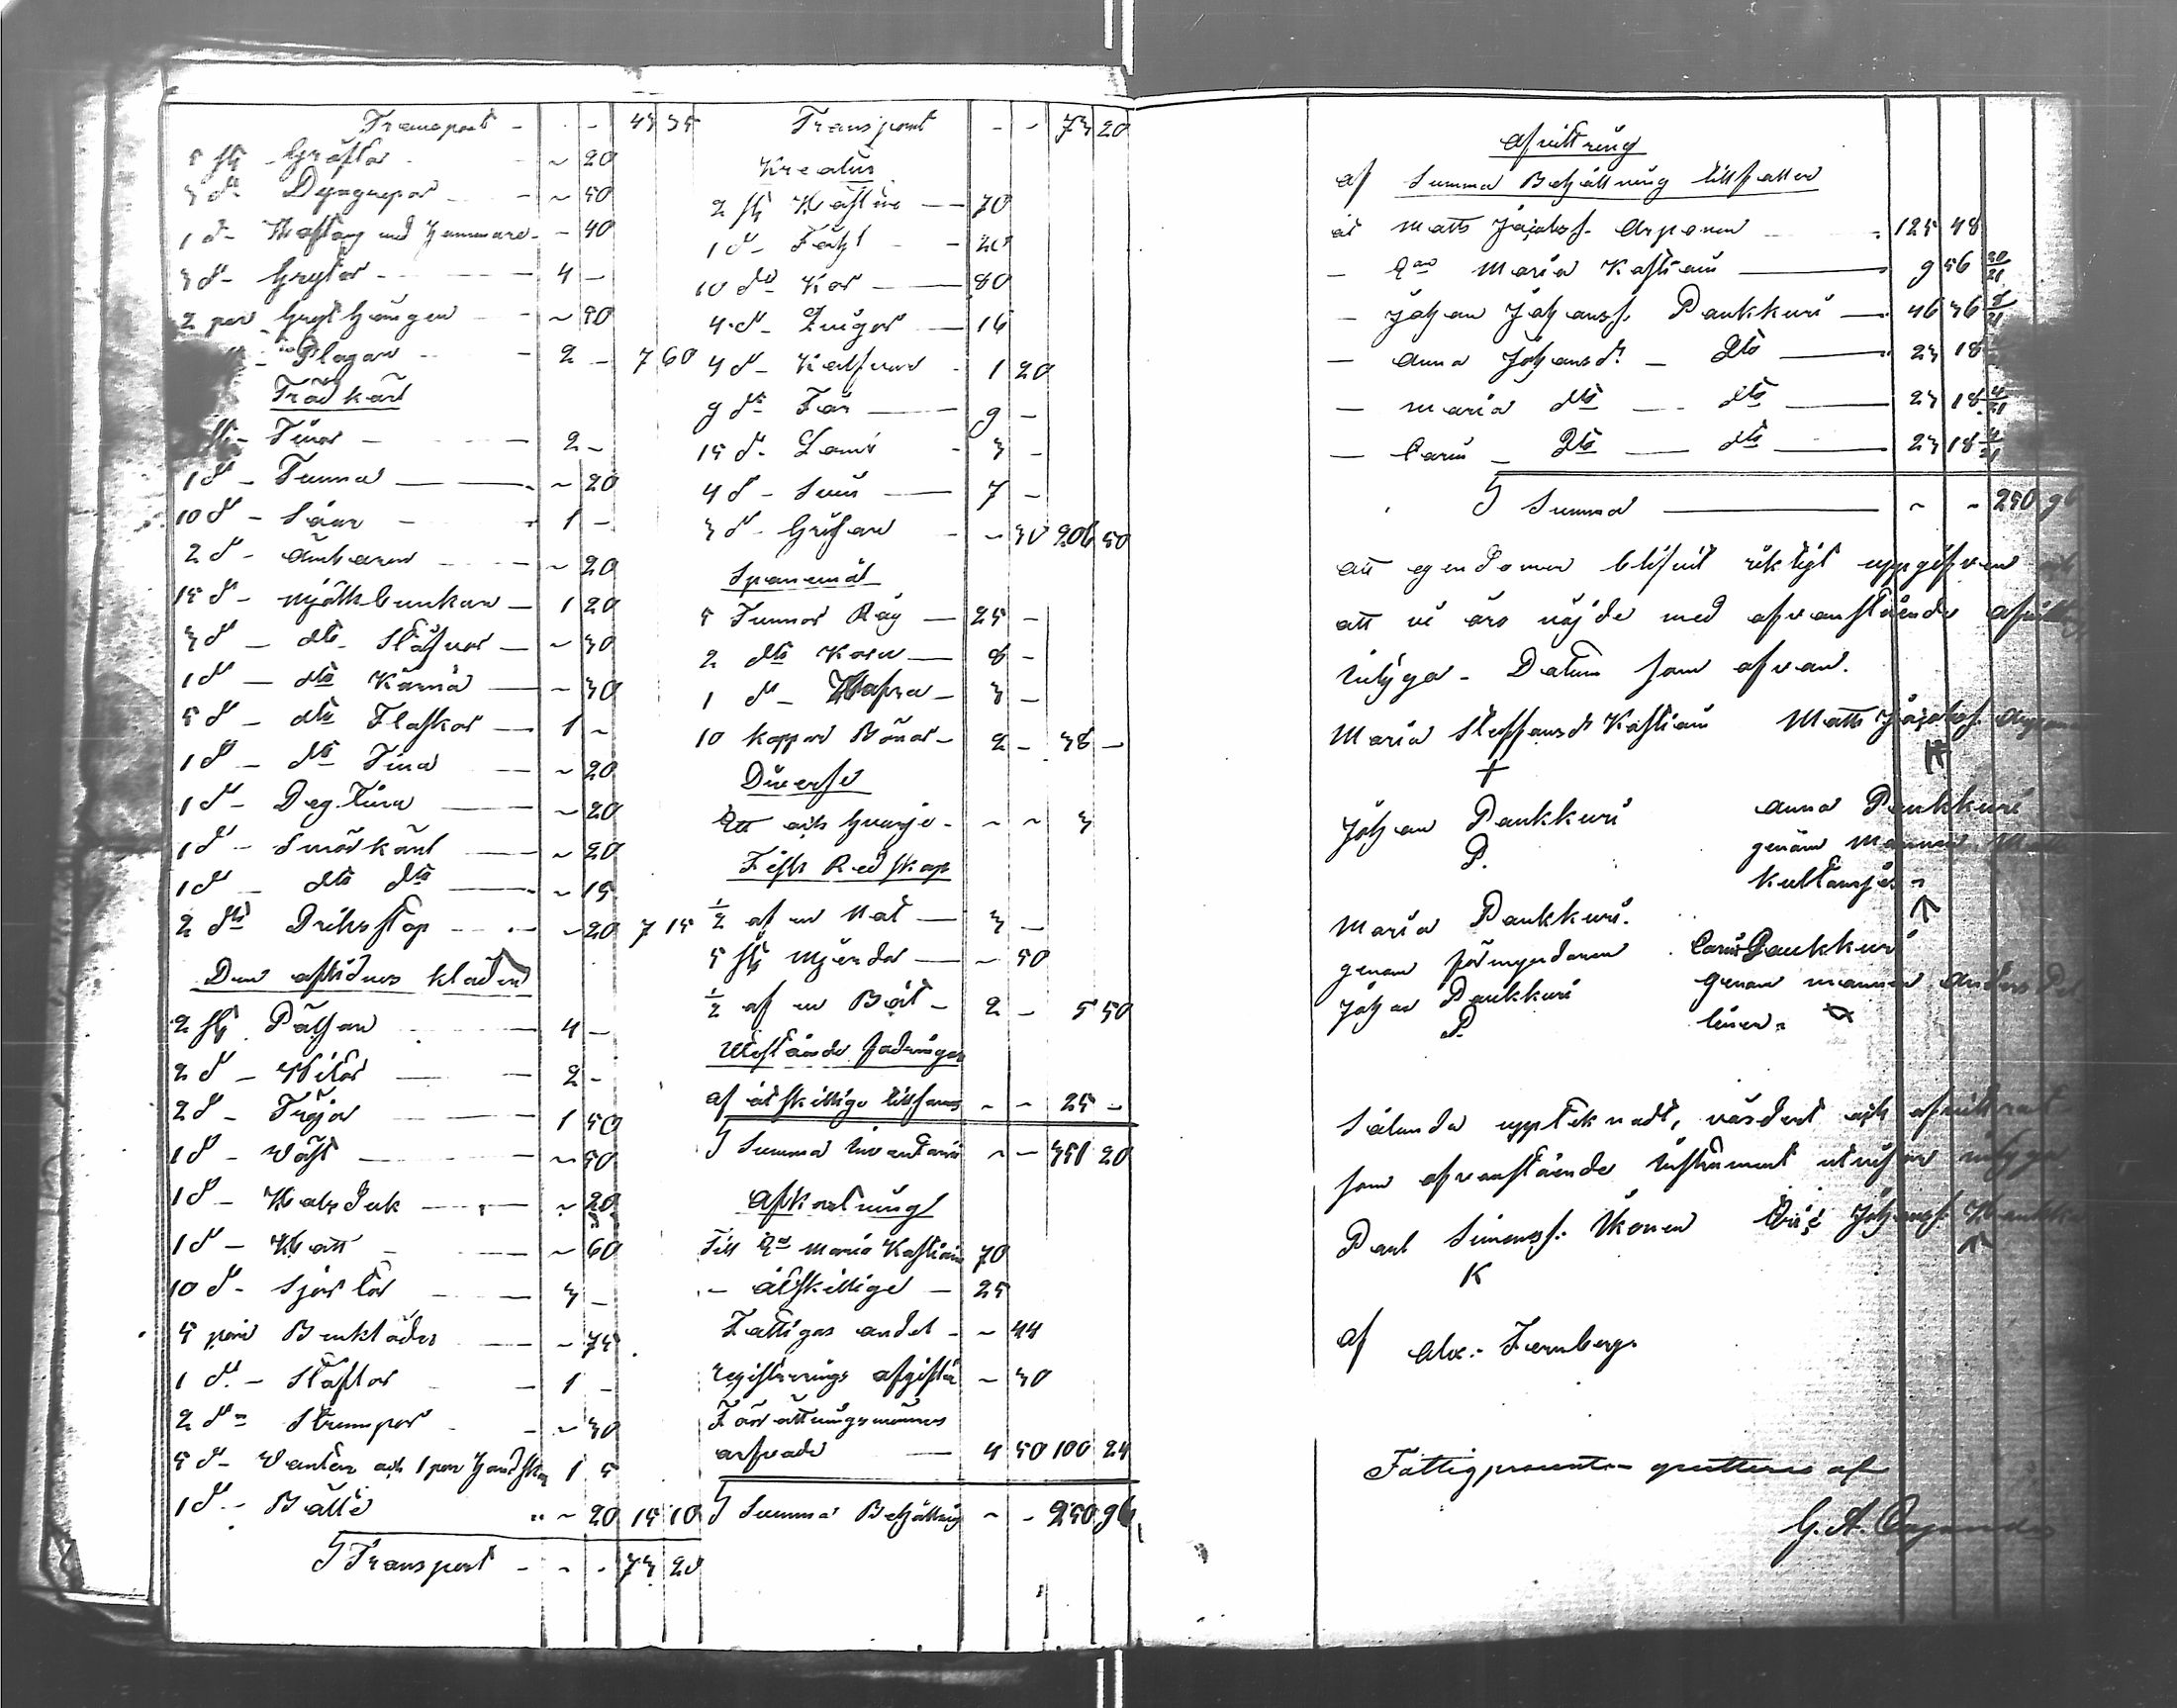 Transport - - - 43 35
5 st: Gräftor - ~ 20
3 d:o Dyngrepor - ~ 50
1 d:o Hästång med Hammare - - 40
3 d:o Grytor - 4 -
2 par Gryt hängen - ~ 50
Plogar - 2 - 7 60
Träd kärl
st: Tinor - 2 -
1 d:o Tunna - ~ 20
10 d:o Såar - 1 -
2 d:o Ämbaren - ~ 20
15 d:o Mjölk bunkar - 1 20
3 d:o dto Stäfvor - ~ 30
1 d:o dto Kärna - ~ 30
5 d:o dto Flaskor - 1 ~
1 d:o dto Tina ~ 20
1 d:o Deg tina ~ 20
1 d:o Smörkärl ~ 20
1 d:o dto dto ~ 15
2 dto Dricks stop - ~ 20 7 15
Den aflidnes kläder
2 st: Pälsar - 4 -
2 d:o 2 -
2 d:o Tröjor - 1 50
1 d:o Wäst - ~ 50
1 d:o Halsduk - ~ 20
1 d:o Hatt - ~ 60
10 d:o Skjortor - 3 -
5 par Benkläder - ~ 75
1 d:o Stöflor - 1 -
2 d:o Strumpor - ~ 30
5 d:o Wantar och 1 par Handskar 1 5
1 d:o Bälte ~ 20 15 10
Transport - - - 73 20
Transport - - 73 20
Kreatur
2 st: Hästar - 70
1 d:o Fåhl - 20
10 dto Kor - 80
4 d:o Qvigor - 16
4 d:o Kalfvar - 1 20
9 dto Får - 9 -
15 d:o Lam - 3 -
4 d:o Svin - 7 -
3 d:o Grisar - ~ 30 206 50
Spanemål
5 Tunnor Råg - 25 -
2 dto Korn - 8 -
1 d:o Hafra - 3 -
10 kappar Bönor - 2 - 38 -
Diverse
Ett och hvarje - ~ ~ 3
Fisk Redskap
½ af en Not - 3 -
5 st: Mjerdar - ~ 50
½ af en Båt - 2 - 5 50
Utestående fordringar
af åtskillige tillsamans ~ - 25 -
Summa Inventarii ~ - 351 20
Afkortning
Till Maria Kastiain 70
- åtskillige - 25
Fattigas andel - ~ 44
registrerings afgiften ~ 30
Förrättningsmännens
arfvode - 4 50 100 24
Summa Behållning ~ - 250 96
Afvittring
af Summa Behållning tillfaller
åt Matts Jacobss. Arponen - 125 48
- Maria Kastiain - 9 56 20/21
- Johan Johanss. Paukkuri - 46 36 8/21
- Anna Johansdr. - Dto - 23 18
- Maria dto - dto - 23 18 4/21
- Carin - Dto - dto - 23 18 4/21
Summa - ~ - 250 96
att egendomen blifvit riktigt uppgifven
att vi äro nöjde med ofvanstående afvittring
intyga. Datum som ofvan.
Maria Steffansdr Kastiain Matts Jacobss.
Johan Paukkuri Anna Paukkuri
P. genom Mannen
Maria Paukkuri.
genom förmyndaren Carin Paukkuri
Johan Paukkuri genom mannen Anders
P.
Sålunda upptecknadt, värderat och afvittrat
som ofvanstående Instrument utvisar intyga
Paul Simonss. Ikonen Johanss.
K
af Alex: Fernberg.
Fattigprocenten qvitteras af
G. A.